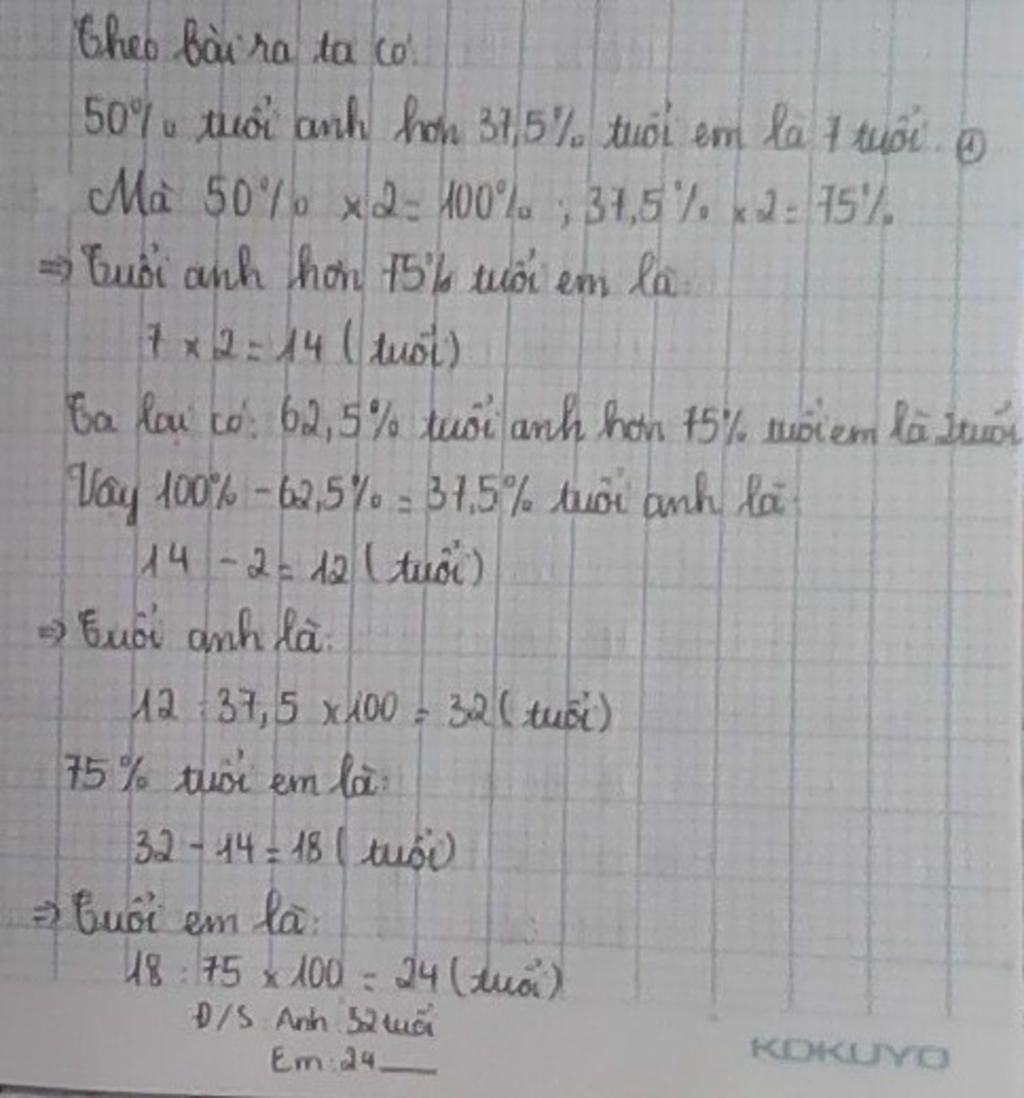 Theo bài ra ta có:
50% tuổi anh hơn 37,5% tuổi em là 7 tuổi. ①
Mà 50% x 2 = 100% ; 37,5% x 2 = 75%
=> Tuổi anh hơn 75% tuổi em là:
7 x 2 = 14 ( tuổi)
Ta lại có: 62,5% tuổi anh hơn 75% tuổi em là 2 tuổi
Vậy 100% - 62,5% = 37,5% tuổi anh là:
14 - 2 = 12 ( tuổi)
=> Tuổi anh là:
12 : 37,5 x 100 = 32 ( tuổi)
75% tuổi em là:
32 - 14 = 18 ( tuổi)
=> Tuổi em là:
18 : 75 x 100 = 24 (tuổi)
Đ/S: Anh 32 tuổi
Em: 24 __
KOKUYO